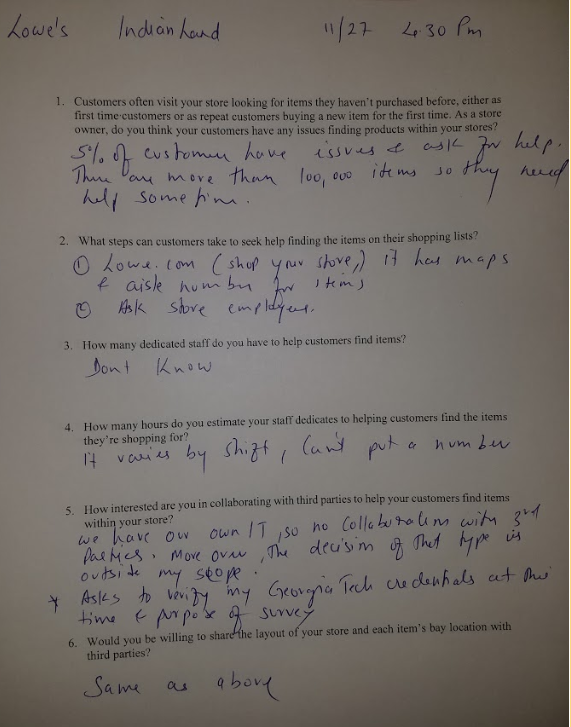 Lowe's Indian Land 11/27 4:30 Pm
1. Customers often visit your store looking for items they haven't purchased before, either as
first time customers or as repeat customers buying a new item for the first time. As a store
owner, do you think your customers have any issues finding products within your stores?
5% of customer have issues & ask for help.
There are more than 100,000 items so they need
help some time.
2. What steps can customers take to seek help finding the items on their shopping lists?
① Lowe.com (shop your store,) it has maps
& aisle number for items
② Ask store employees.
3. How many dedicated staff do you have to help customers find items?
Dont Know
4. How many hours do you estimate your staff dedicates to helping customers find the items
they're shopping for?
It varies by shift, Can't put a number
5. How interested are you in collaborating with third parties to help your customers find items
within your store?
we have our own IT, so no Collaboration with 3rd
Parties. More over, the decision of that type is
outside my scope.
* Asks to verify my Georgia Tech credentials at this
time & purpose of survey
6. Would you be willing to share the layout of your store and each item's bay location with
third parties?
Same as above